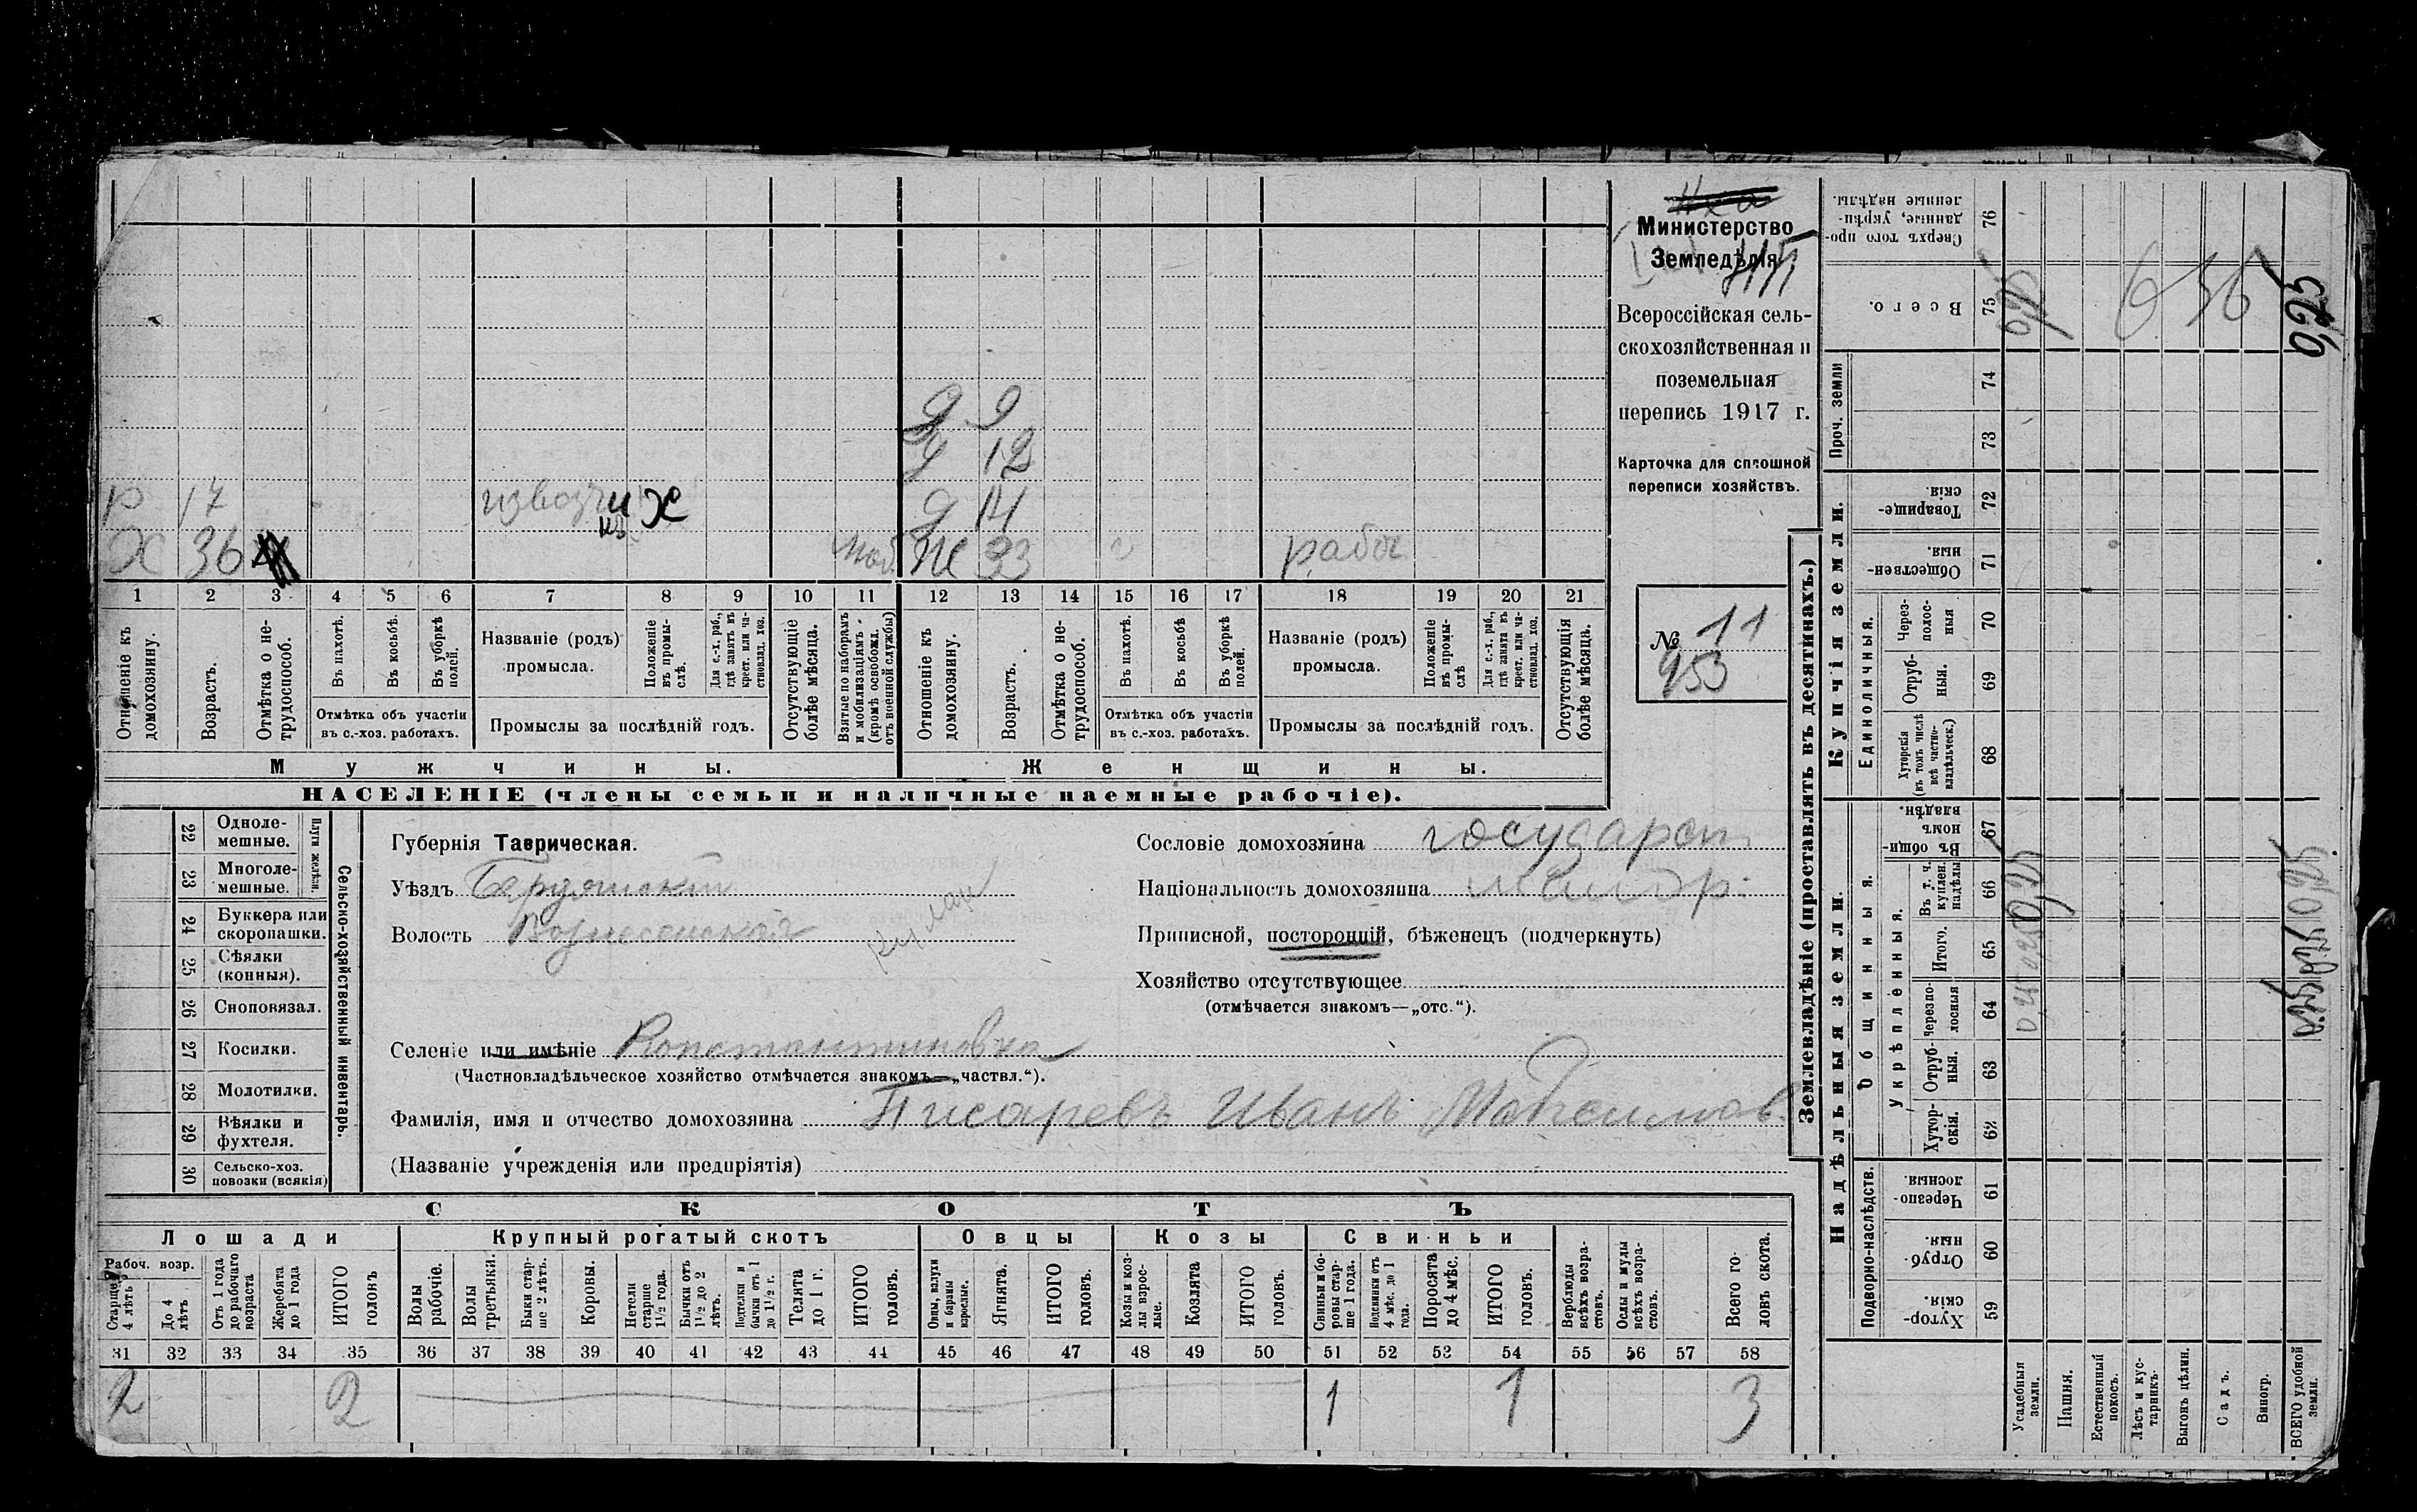 Министерство
Земледѣлія
Всероссійская сель-
скохозяйственная и
поземельная
перепись 1917 г.
Карточка для сплошной
переписи хозяйствъ.
№ 11
953
Д 9
Д 12
Р 17 извозчикъ Х Д 14
Х 36 Ж 33 рабоч
1 2 3 4 5 6 7 8 9 10 11 12 13 14 15 16 17 18 19 20 21
Отношеніе къ домохозяину.
Возрастъ.
Отмѣтка о не-трудоспособ.
Въ пахотѣ.
Въ косьбѣ.
Въ уборкѣ полей.
Отмѣтка объ участіи въ с.-хоз. работахъ.
Названіе (родъ) промысла.
Положеніе въ промы-слѣ.
Для с.-х. раб., гдѣ занятъ въ крест. или ча-стновлад. хоз.
Промыслы за послѣдній годъ.
Отсутствующіе болѣе мѣсяца.
Взятые по наборамъ и мобилизаціямъ (кромѣ освобожд. отъ военной службы)
Отношеніе къ домохозяину.
Возрастъ.
Отмѣтка о не-трудоспособ.
Въ пахотѣ.
Въ косьбѣ
Въ уборкѣ полей.
Отмѣтка объ участіи въ с.-хоз. работахъ.
Названіе (родъ) промысла.
Положеніе въ промы-слѣ
Для с.-х. раб., гдѣ занята въ крест. или ча-стновлад. хоз.
Промыслы за послѣдній годъ.
Отсутствующія болѣе мѣсяца.
Мужчины. Женщины.
НАСЕЛЕНІЕ (члены семьи и наличные наемные рабочіе).
Сельско-хозяйственный инвентарь.
Плуги желѣзн.
22 Одноле-мешные.
23 Многоле-мешные.
24 Буккера или скоропашки.
25 Сѣялки (конныя).
26 Сноповязал.
27 Косилки.
28 Молотилки.
29 Вѣялки и фухтеля.
30 Сельско-хоз. повозки (всякія)
Губернія Таврическая.
Уѣздъ Бердянскій
Волость Вознесенская
Селеніе или имѣніе Константиновка
(Частновладѣльческое хозяйство отмѣчается знакомъ—„частвл.“).
Фамилія, имя и отчество домохозяина Писаревъ Иванъ Максимов.
(Названіе учрежденія или предпріятія)
Сословіе домохозяина государст
Національность домохозяина
Приписной, посторонній, бѣженецъ (подчеркнуть)
Хозяйство отсутствующее
(отмѣчается знакомъ—„отс.“).
СКОТЪ
Лошади Крупный рогатый скотъ Овцы Козы Свиньи
Рабоч. возр.
Старще 4 лѣтъ
До 4 лѣтъ
Отъ 1 года до рабочаго возраста
Жеребята до 1 года
ИТОГО головъ
Волы рабочіе.
Волы третьяки.
Быки стар-ше 2 лѣтъ.
Коровы.
Нетели старше 1½ года.
Бычки отъ 1½ до 2 лѣтъ.
Подтелки и бычки отъ 1 до 1½ г.
Телята до 1 г.
ИТОГО головъ.
Овцы, валухи и бараны взрослые.
Ягнята.
ИТОГО головъ.
Козы и коз-лы взрос-лые.
Козлята
ИТОГО головъ.
Свиньи и бо-ровы стар-ше 1 года.
Подсвинки отъ 4 мѣс. до 1 года.
Поросята до 4 мѣс.
ИТОГО головъ.
Верблюды всѣхъ возра-стовъ.
Ослы и мулы всѣхъ возра-стовъ.
Всего го-ловъ скота.
31 32 33 34 35 36 37 38 39 40 41 42 43 44 45 46 47 48 49 50 51 52 53 54 55 56 57 58
2 2 1 1 3
Землевладѣніе (проставлять въ десятинахъ.)
Надѣльныя земли. Купчія земли.
Подворно-наслѣдств.
Общинныя.
Укрѣпленныя.
Единоличныя.
Проч. земли
59 Хутор-скія.
60 Отруб-ныя.
61 Черезпо-лосныя.
62 Хутор-скія.
63 Отруб-ныя.
64 Черезпо-лосныя
65 Итого.
66 Въ т. ч. куплен. надѣлы
67 Въ общи-номъ владѣн.
68 Хуторскія (въ томъ числѣ всѣ частно-владѣльческ.)
69 Отруб-ныя.
70 Через-полос-ныя
71 Обществен-ныя.
72 Товарище-скія.
73
74
75 Всего.
76 Сверхъ того про-данные, укрѣп-ленные надѣлы.
Усадебныя земли.
0,25 0,25 0,25
Пашня.
Естественный покосъ.
Лѣсъ и кус-тарникъ.
Выгонъ цѣлин.
Садъ.
Виногр.
ВСЕГО удобной земли.
0,25 0,25 0,25 0,25